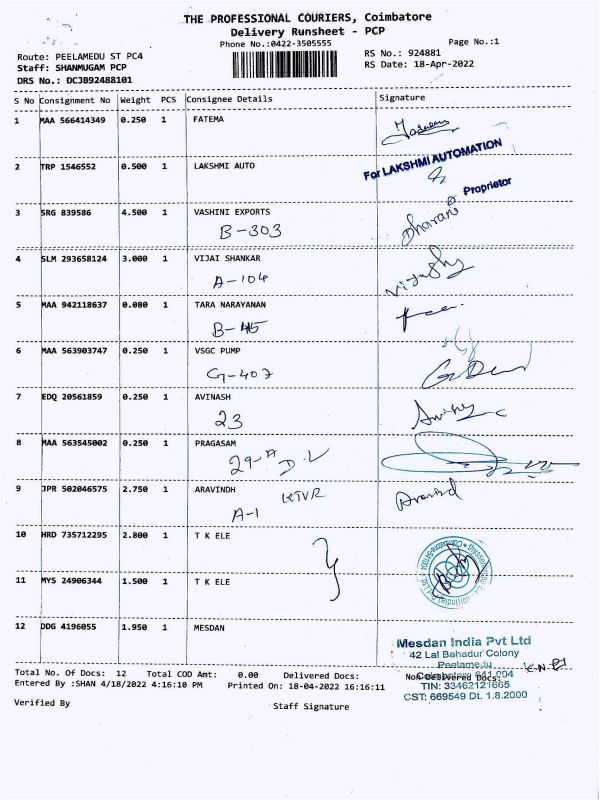 THE PROFESSIONAL COURIERS, Coimbatore
Delivery Runsheet - PCP
Phone No.:0422-3505555
Page No.:1
Route: PEELAMEDU ST PC4
Staff: SHANMUGAM PCP
DRS No.: DCJB92488101
RS No.: 924881
RS Date: 18-Apr-2022
S No Consignment No Weight PCS Consignee Details Signature
1 MAA 566414349 0.250 1 FATEMA
2 TRP 1546552 0.500 1 LAKSHMI AUTO
For LAKSHMI AUTOMATION
Proprietor
3 SRG 839586 4.500 1 VASHINI EXPORTS
B-303
Dharani
4 SLM 293658124 3.000 1 VIJAI SHANKAR
A-104
5 MAA 942118637 0.080 1 TARA NARAYANAN
B-45
6 MAA 563903747 0.250 1 VSGC PUMP
G-407
7 EDQ 20561859 0.250 1 AVINASH
23
8 MAA 563545002 0.250 1 PRAGASAM
29-A D.L
9 JPR 502046575 2.750 1 ARAVINDH
A-1 KTVR
Aravind
10 HRD 735712295 2.800 1 T K ELE
11 MYS 24906344 1.500 1 T K ELE
12 DDG 4196055 1.950 1 MESDAN
Mesdan India Pvt Ltd
42 Lal Bahadur Colony
Peelamedu
Coimbatore 641 004
TIN: 33462121665
CST: 669549 Dt. 1.8.2000
Total No. Of Docs: 12 Total COD Amt: 0.00 Delivered Docs: Non-Delivered Docs:
Entered By :SHAN 4/18/2022 4:16:10 PM Printed On: 18-04-2022 16:16:11
Verified By
Staff Signature